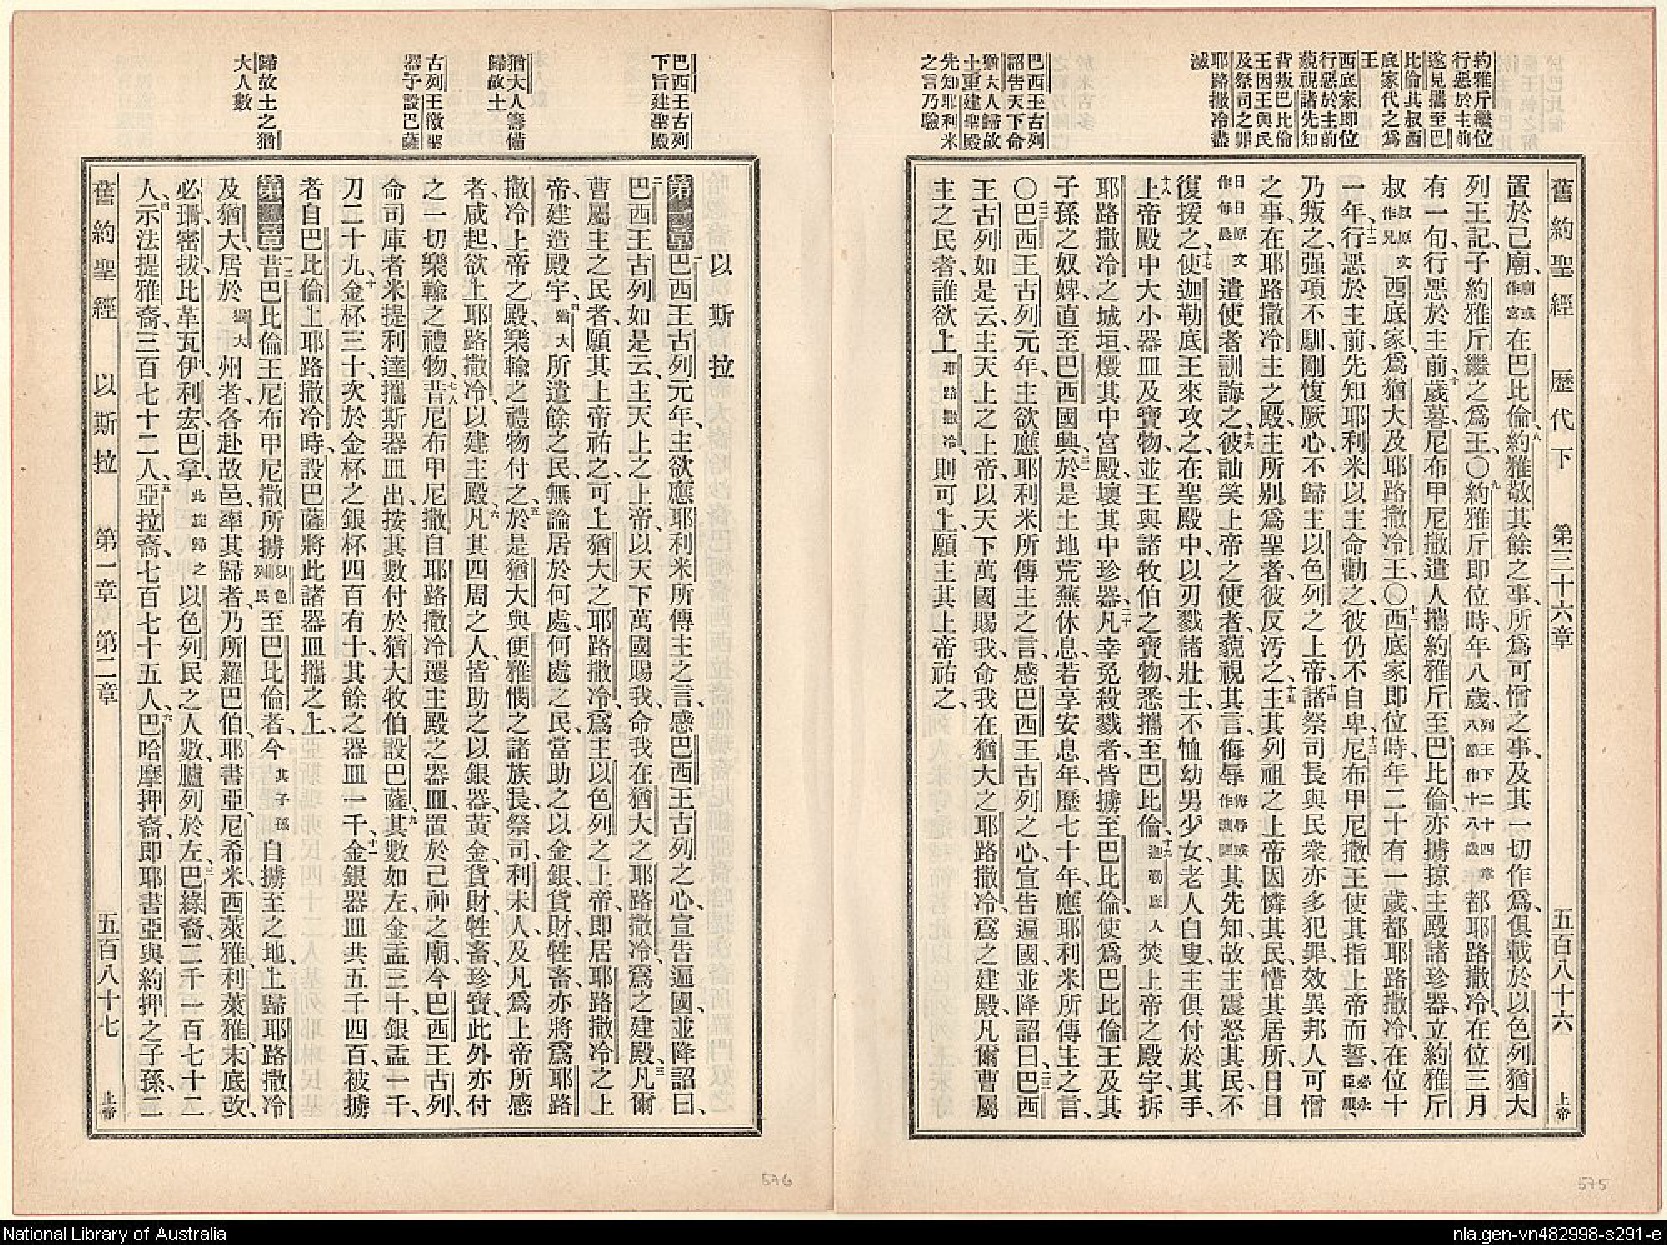 約雅斤繼位
行惡於主前
遂見攜至巴
比倫其叔西
底家代之為
王
西底家即位
行惡於主前
藐視諸先知
背叛巴比倫
王因王與民
及祭司之罪
耶路撒冷盡
滅
巴西王古列
詔告天下命
猶大人歸故
土重建聖殿
先知耶利米
之言乃驗
舊約聖經 歷代下 第三十六章 五百八十六 上帝
置於己廟、廟或作宮在巴比倫、八約雅敬其餘之事、所為可憎之事、及其一切作為、俱載於以色列猶大
列王記、子約雅斤繼之為王、〇九約雅斤即位時、年八歲、列王下二十四章八節作十八歲都耶路撒冷、在位三月
有一旬、行惡於主前、十歲暮、尼布甲尼撒遣人攜約雅斤至巴比倫、亦擄掠主殿諸珍器、立約雅斤
叔叔原文作兄西底家、為猶大及耶路撒冷王、〇十一西底家即位時、年二十有一歲、都耶路撒冷、在位十
一年、十二行惡於主前、先知耶利米以主命勸之、彼仍不自卑、十三尼布甲尼撒王使其指上帝而誓、必永臣服
乃叛之、强項不馴、剛愎厥心、不歸主以色列之上帝、十四諸祭司長與民衆亦多犯罪、效異邦人可憎
之事、在耶路撒冷主之殿、主所別為聖者、彼反汚之、十五主其列祖之上帝、因憐其民、惜其居所、日日
日日原文作每晨遣使者訓誨之、十六彼訕笑上帝之使者、藐視其言、侮辱侮辱或作譏誚其先知、故主震怒其民、不
復援之、十七使迦勒底王來攻之、在聖殿中、以刃戮諸壯士、不恤幼男少女老人白叟、主俱付於其手、
十八上帝殿中大小器皿及寶物、並王與諸牧伯之寶物、悉攜至巴比倫、十九迦勒底人焚上帝之殿宇、拆
耶路撒冷之城垣、燬其中宮殿、壞其中珍器、二十凡幸免殺戮者、皆擄至巴比倫、使為巴比倫王及其
子孫之奴婢、直至巴西國興、二一於是土地荒蕪休息、若享安息年、歷七十年、應耶利米所傳主之言、
〇二二巴西王古列元年、主欲應耶利米所傳主之言、感巴西王古列之心、宣告遍國、並降詔曰、二三巴西
王古列如是云、主天上之上帝、以天下萬國賜我、命我在猶大之耶路撒冷、為之建殿、凡爾曹屬
主之民者、誰欲上耶路撒冷則可上、願主其上帝祐之、
575
巴西王古列
下旨建聖殿
猶大人籌備
歸故土
古列王徵聖
器予設巴薩
歸故土之猶
大人數
以斯拉
第一章一巴西王古列元年、主欲應耶利米所傳主之言、感巴西王古列之心、宣告遍國、並降詔曰、
二巴西王古列如是云、主天上之上帝、以天下萬國賜我、命我在猶大之耶路撒冷、為之建殿、三凡爾
曹屬主之民者、願其上帝祐之、可上猶大之耶路撒冷、為主以色列之上帝、即居耶路撒冷之上
帝、建造殿宇、四猶大所遺餘之民、無論居於何處、何處之民、當助之以金銀貨財牲畜、亦將為耶路
撒冷上帝之殿、樂輸之禮物付之、五於是猶大與便雅憫之諸族長、祭司利未人、及凡為上帝所感
者、咸起、欲上耶路撒冷、以建主殿、六凡其四周之人、皆助之以銀器黃金貨財牲畜珍寶、此外亦付
之一切樂輸之禮物、七昔尼布甲尼撒自耶路撒冷遷主殿之器皿、置於己神之廟、八今巴西王古列、
命司庫者米提利達攜斯器皿出、按其數付於猶大牧伯設巴薩、九其數如左、金盂三十、銀盂一千、
刀二十九、十金杯三十、次於金杯之銀杯四百有十、其餘之器皿一千、十一金銀器皿共五千四百、被擄
者自巴比倫上耶路撒冷時、設巴薩將此諸器皿攜之上、
第二章一昔巴比倫王尼布甲尼撒所擄以色列民至巴比倫者、今其子孫自擄至之地、上歸耶路撒冷
及猶大、居於猶大州者、各赴故邑、二率其歸者、乃所羅巴伯、耶書亞、尼希米、西萊雅、利萊雅、末底改、
必珊、密拔、比革瓦伊、利宏、巴拿、此諸歸之以色列民之人數、臚列於左、三巴綠裔二千一百七十二
人、四示法提雅裔、三百七十二人、五亞拉裔、七百七十五人、六巴哈摩押裔、即耶書亞與約押之子孫、二
舊約聖經 以斯拉 第一章 第二章 五百八十七 上帝
576
National Library of Australia
nla.gen-vn482998-s291-e